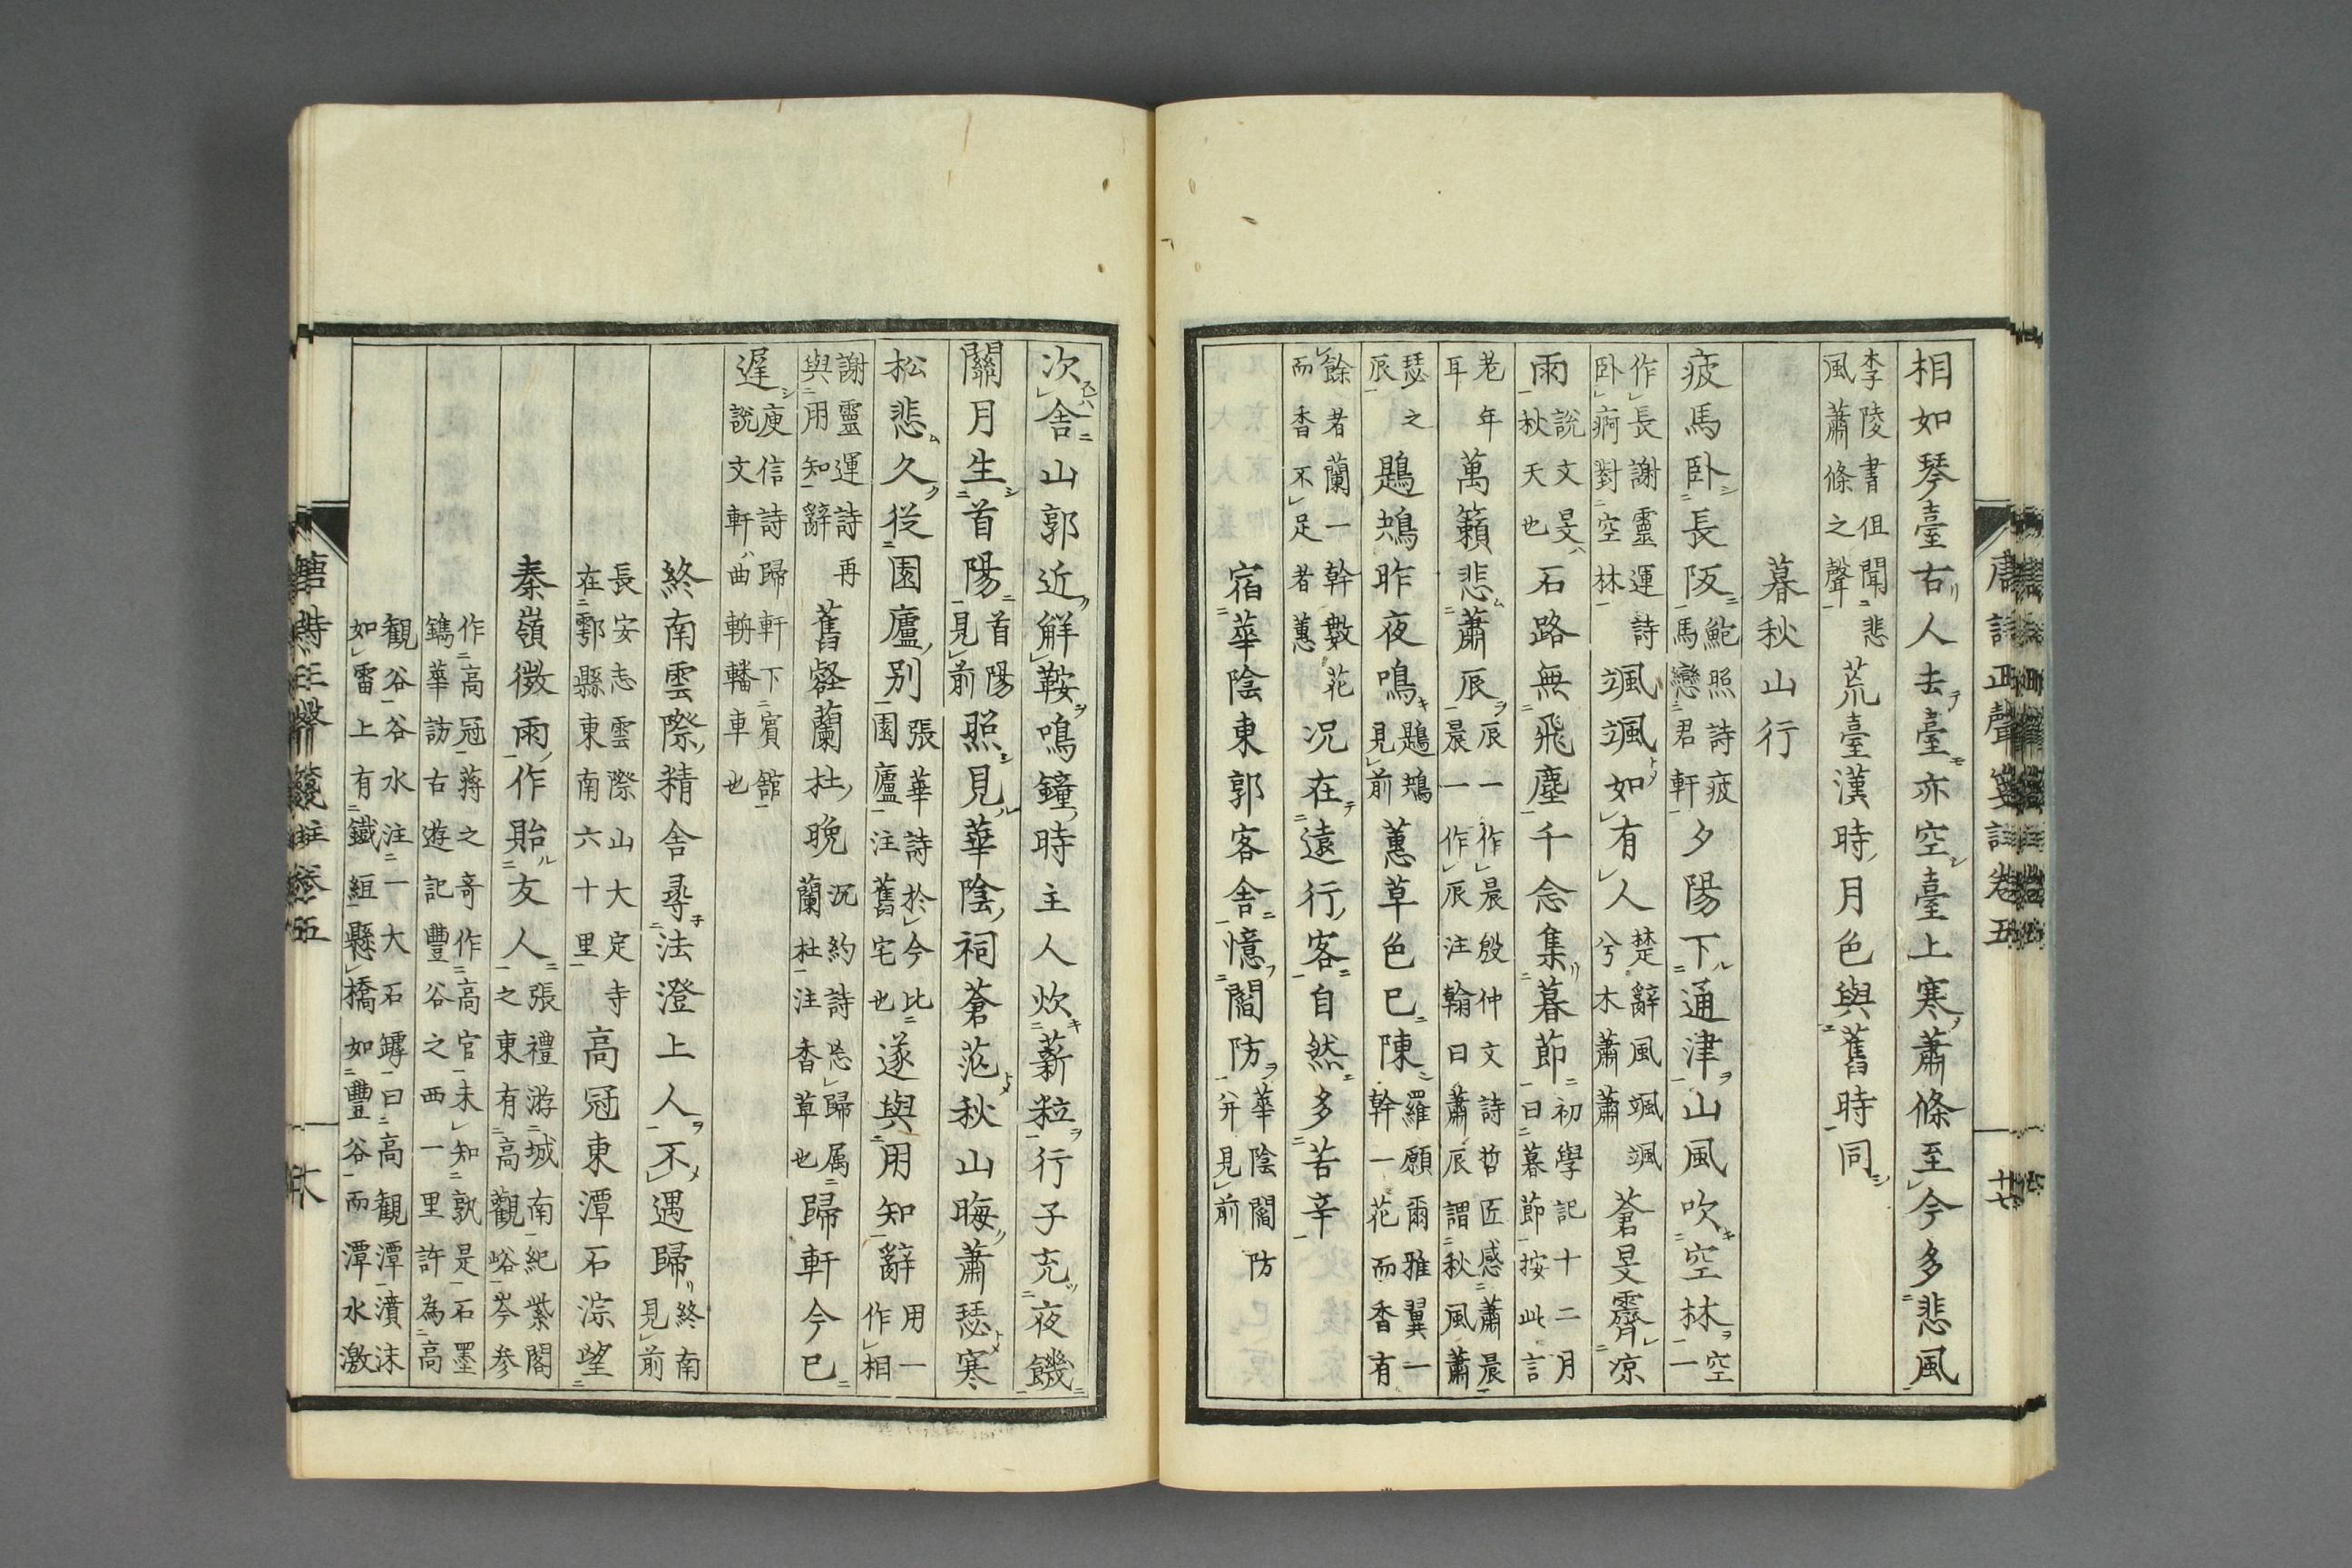 唐詩正聲箋註卷五 十七
相如琴臺古人去臺亦空臺上寒蕭條至今多悲風
李陵書但聞悲風蕭條之聲荒臺漢時月色與舊時同
暮秋山行
疲馬卧長阪鮑照詩疲馬戀君軒夕陽下通津山風吹空林空一
作長謝靈運詩卧痾對空林颯颯如有人楚辭風颯颯兮木蕭蕭蒼旻霽凉
雨說文旻秋天也石路無飛塵千念集暮節初學記十二月曰暮節按此言
老年耳萬籟悲蕭辰辰一作晨殷仲文詩哲匠感蕭晨晨一作辰注翰曰蕭辰謂秋風蕭
瑟之辰鶗鴂昨夜鳴鶗鴂見前蕙草色已陳羅願爾雅翼一幹一花而香有
餘者蘭一幹數花而香不足者蕙况在遠行客自然多苦辛
宿華陰東郭客舍憶閻防華陰閻防并見前
次舍山郭近解鞍鳴鐘時主人炊薪粒行子充夜饑
關月生首陽首陽見前照見華陰祠蒼茫秋山晦蕭瑟寒
松悲久從園廬别張華詩於今比園廬注舊宅也遂與用知辭用一作相
謝靈運詩再與用知辭舊壑蘭杜晚沉約詩忽歸属蘭杜注香草也歸軒今已
遲庾信詩歸軒下賓舘說文軒曲輈轓車也
終南雲際精舍尋法澄上人不遇歸終南見前
長安志雲際山大定寺在鄠縣東南六十里高冠東潭石淙望
秦嶺微雨作貽友人張禮游城南紀紫閣之東有高觀峪岑参
作高冠蒋之奇作高官未知孰是石墨鐫華訪古遊記豐谷之西一里許為高
觀谷谷水注一大石罅曰高觀潭濆沫如雷上有鐵組懸橋如豐谷而潭水激